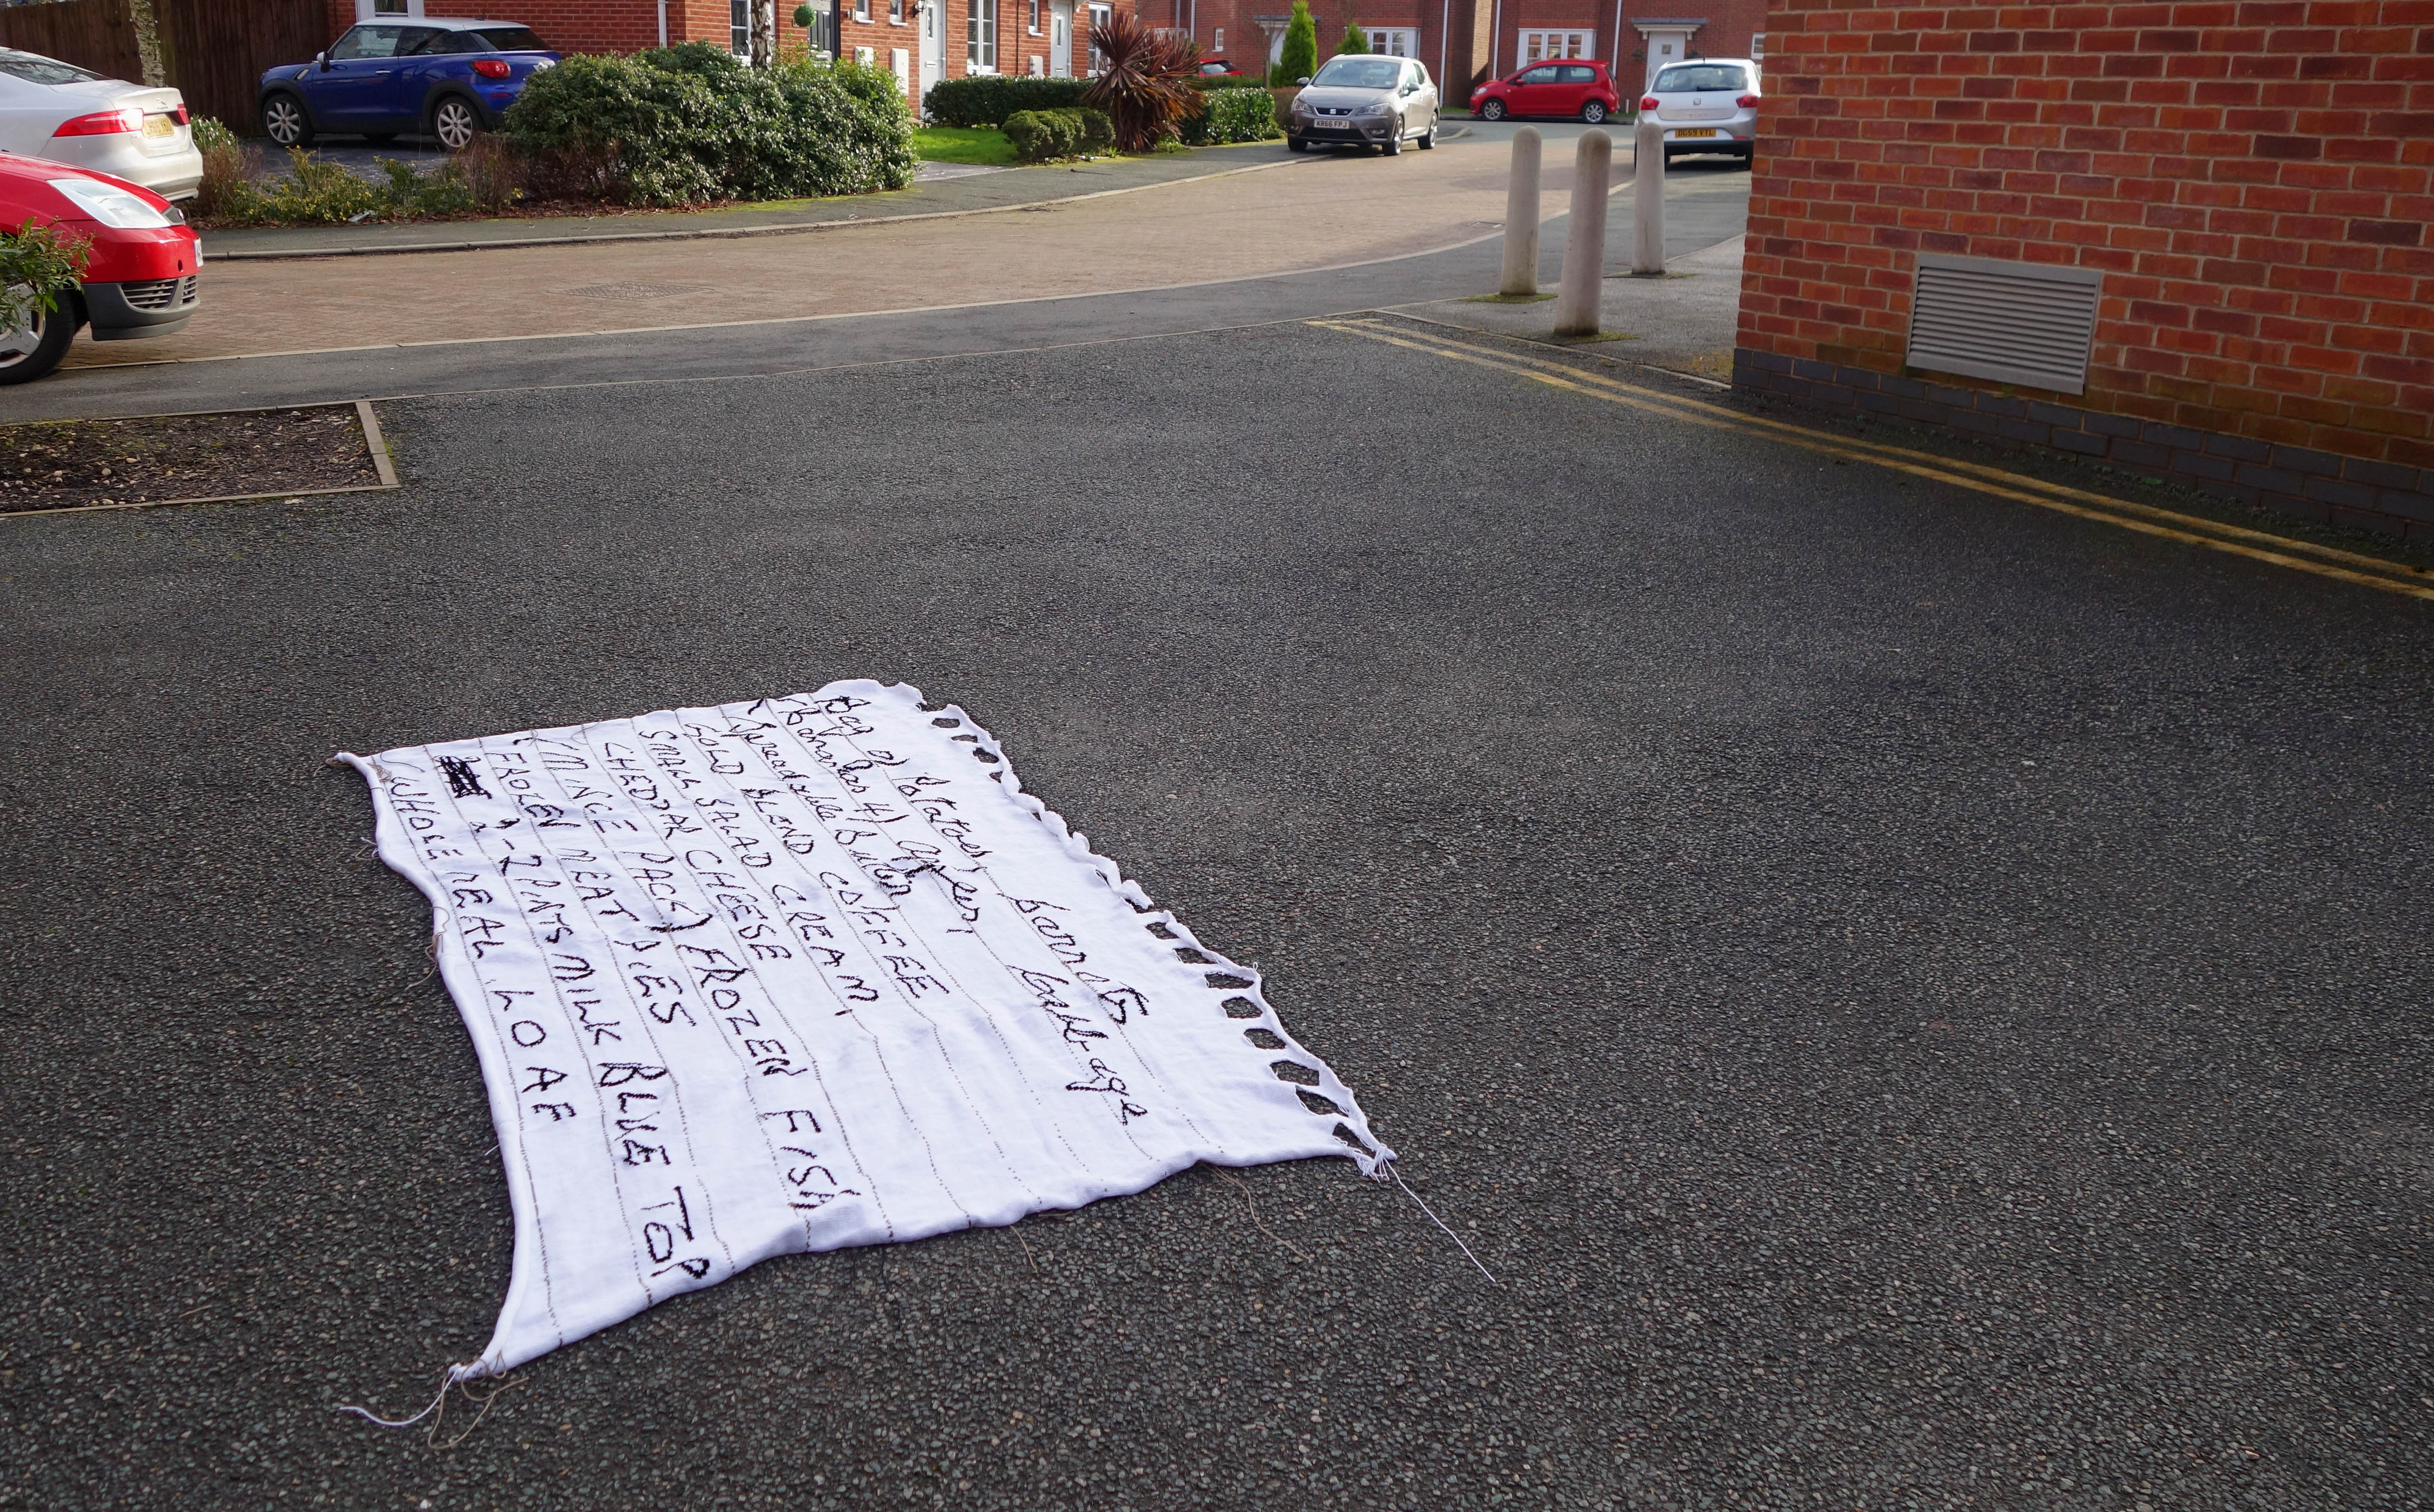 KR66 FPJ
Bag of Potatoes Carrots
(Bananas 4) Green Cabbage
GOLD BLEND COFFEE
SMALL SALAD CREAM
CHEDDAR CHEESE
(MINCE PACK) FROZEN FISH
FROZEN MEAT PIES
2-2 PINTS MILK BLUE TOP
(WHOLEMEAL LOAF